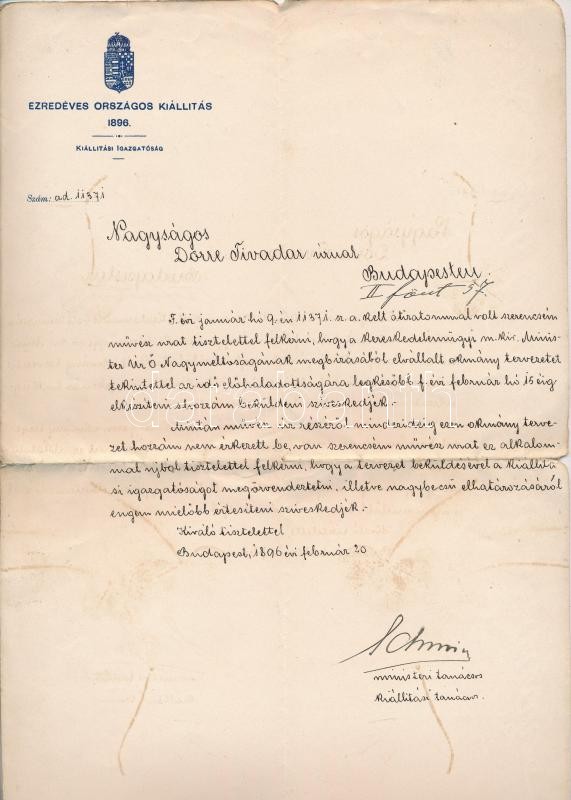 EZREDÉVES ORSZÁGOS KIÁLLITÁS
1896.
KIÁLLITÁSI IGAZGATÓSÁG
Szám: ad. 11371
Nagyságos
Dörre Tivadar úrnak
Budapesten.
II főut 37.
F. évi január hó 9.-én 11371. sz. a. kelt átiratommal volt szerencsém
művész urat tisztelettel felkérni, hogy a kereskedelemügyi m. kir. Minis-
ter Úr Ő Nagyméltóságának megbizásából elvállalt okmány tervezetet
tekintettel az idő előhaladottságára legkésőbb f. évi február hó 15 éig
elkésziteni s hozzám beküldeni sziveskedjék.-
Miután művész úr részéről mindezideig ezen okmány terve-
zet hozzám nem érkezett be, van szerencsém művész urat ez alkalom-
mal ujból tisztelettel felkérni, hogy a tervezet beküldésével a kiállitá-
si igazgatóságot megörvendeztetni, illetve nagybecsű elhatározásáról
engem mielőbb értesiteni sziveskedjék.-
Kiváló tisztelettel
Budapest, 1896 évi február 20
ministeri tanácsos
kiállitási